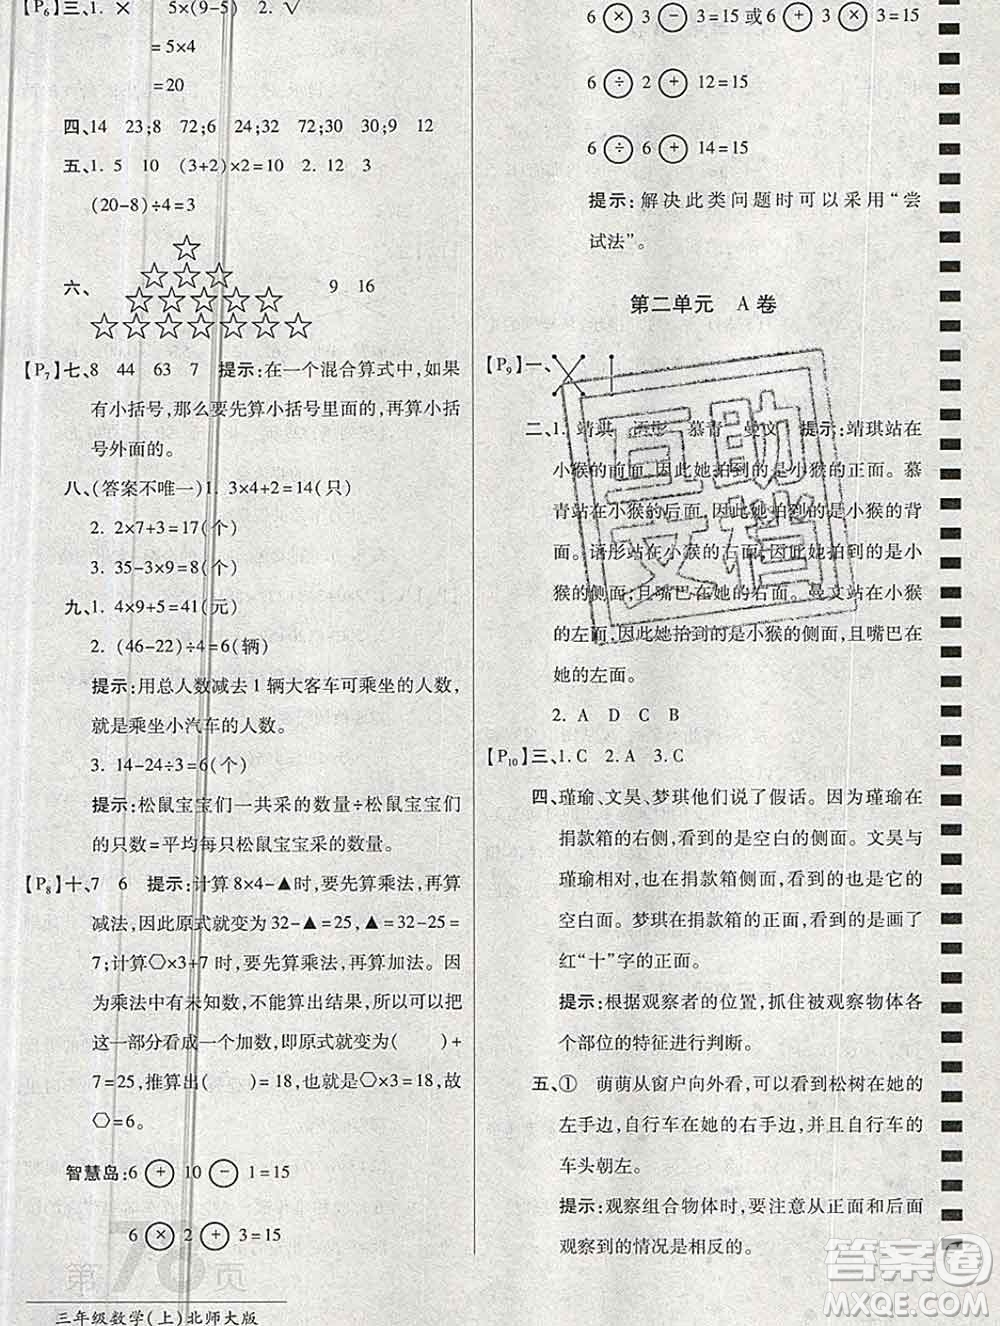 【P6】三、1. ×　5×(9-5)　2. √
=5×4
=20
四、14　23;8　72;6　24;32　72;30　30;9　12
五、1. 5　10　(3+2)×2=10　2. 12　3
(20-8)÷4=3
六、☆
☆☆☆
☆☆☆☆☆
☆☆☆☆☆☆☆　9　16
【P7】七、8　44　63　7　提示:在一个混合算式中,如果
有小括号,那么要先算小括号里面的,再算小括
号外面的。
八、(答案不唯一)1. 3×4+2=14(只)
2. 2×7+3=17(个)
3. 35-3×9=8(个)
九、1. 4×9+5=41(元)
2. (46-22)÷4=6(辆)
提示:用总人数减去 1 辆大客车可乘坐的人数,
就是乘坐小汽车的人数。
3. 14-24÷3=6(个)
提示:松鼠宝宝们一共采的数量÷松鼠宝宝们
的只数=平均每只松鼠宝宝采的数量。
【P8】十、7　6　提示:计算 8×4-▲时,要先算乘法,再算
减法,因此原式就变为 32-▲=25,▲=32-25=
7;计算⬡×3+7 时,要先算乘法,再算加法。因
为乘法中有未知数,不能算出结果,所以可以把
这一部分看成一个加数,即原式就变为(　　)+
7=25,推算出(　　)=18,也就是⬡×3=18,故
⬡=6。
智慧岛:6 ⊕ 10 ⊖ 1=15
6 ⊗ 2 ⊕ 3=15
第76页
三年级数学(上)北师大版
6 ⊗ 3 ⊖ 3=15 或 6 ⊕ 3 ⊗ 3=15
6 ÷ 2 ⊕ 12=15
6 ÷ 6 ⊕ 14=15
提示:解决此类问题时可以采用“尝
试法”。
第二单元　A 卷
【P9】一、
二、1. 靖琪　语彤　慕青　曼文　提示:靖琪站在
小猴的前面,因此她拍到的是小猴的正面。慕
青站在小猴的后面,因此她拍到的是小猴的背
面。语彤站在小猴的右面,因此她拍到的是小
猴的侧面,且嘴巴在她的右面。曼文站在小猴
的左面,因此她拍到的是小猴的侧面,且嘴巴在
她的左面。
2. A　D　C　B
【P10】三、1. C　2. A　3. C
四、瑾瑜、文昊、梦琪他们说了假话。因为瑾瑜在
捐款箱的右侧,看到的是空白的侧面。文昊与
瑾瑜相对,也在捐款箱侧面,看到的也是它的
空白面。梦琪在捐款箱的正面,看到的是画了
红“十”字的正面。
提示:根据观察者的位置,抓住被观察物体各
个部位的特征进行判断。
五、①　萌萌从窗户向外看,可以看到松树在她的
左手边,自行车在她的右手边,并且自行车的
车头朝左。
提示:观察组合物体时,要注意从正面和后面
观察到的情况是相反的。
互助
文档
答案圈
MXQE.COM